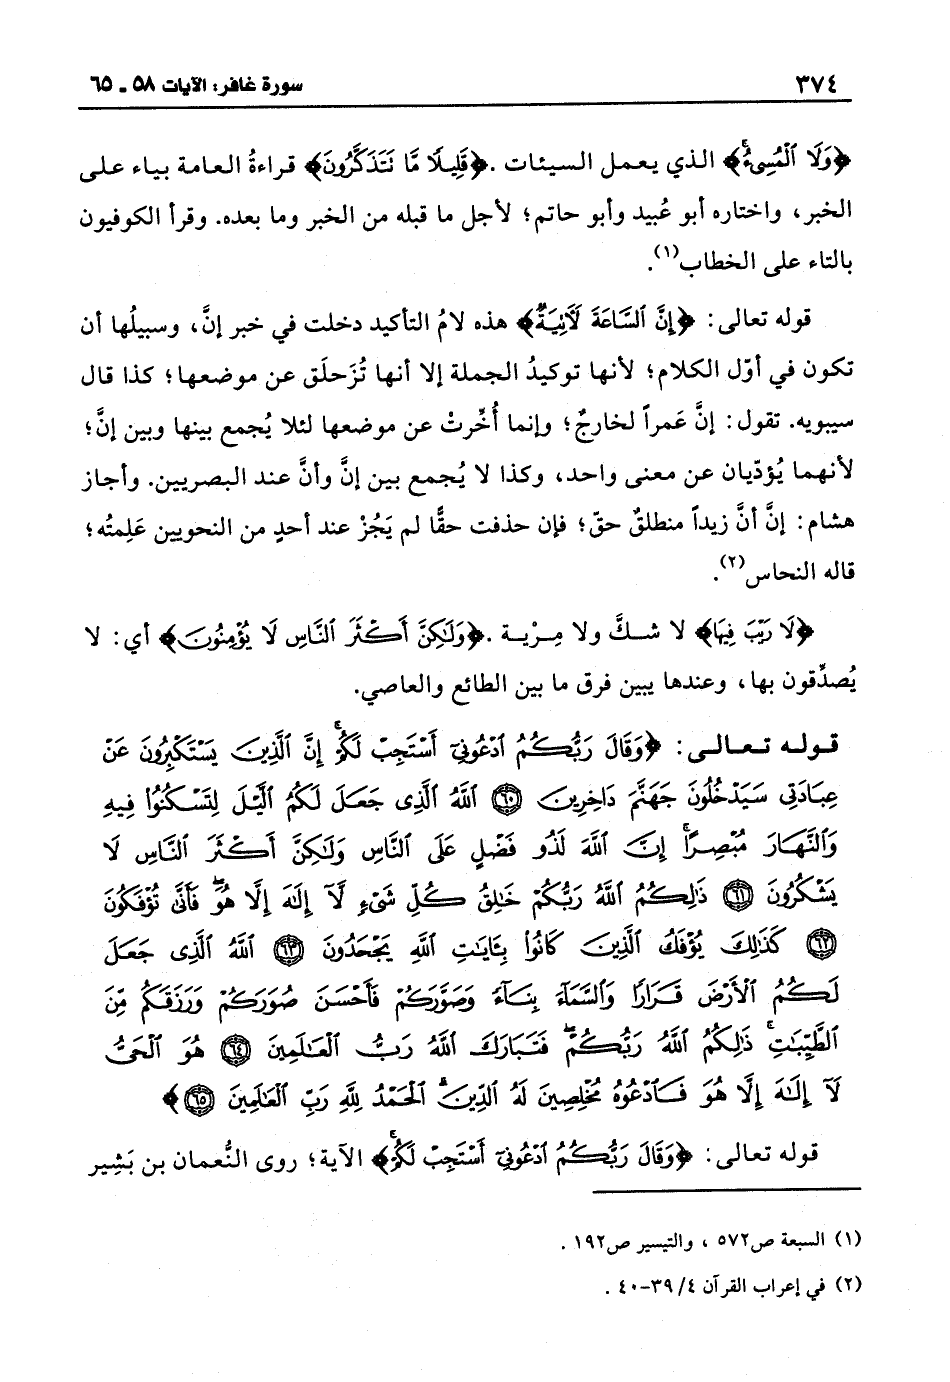 ٣٧٤
سورة غافر: الآيات ٥٨ ـ ٦٥
﴿وَلَا ٱلْمُسِىٓءُ﴾ الذي يعمل السيئات .﴿قَلِيلًا مَّا نَتَذَكَّرُونَ﴾ قراءةُ العامة بياء على
الخبر، واختاره أبو عُبيد وأبو حاتم؛ لأجل ما قبله من الخبر وما بعده. وقرأ الكوفيون
بالتاء على الخطاب(١).
قوله تعالى: ﴿إِنَّ ٱلسَّاعَةَ لَآتِيَةٌ﴾ هذه لامُ التأكيد دخلت في خبر إنَّ، وسبيلُها أن
تكون في أوّل الكلام؛ لأنها توكيدُ الجملة إلا أنها تُزَحلَق عن موضعها؛ كذا قال
سيبويه. تقول: إنَّ عَمراً لخارجٌ؛ وإنما أُخِّرتْ عن موضعها لئلا يُجمع بينها وبين إنَّ؛
لأنهما يُؤدّيان عن معنى واحد، وكذا لا يُجمع بين إنَّ وأنَّ عند البصريين. وأجاز
هشام: إنَّ أنَّ زيداً منطلقٌ حقّ؛ فإن حذفت حقًّا لم يَجُزْ عند أحدٍ من النحويين عَلِمتُه؛
قاله النحاس(٢).
﴿لَا رَيْبَ فِيهَا﴾ لا شكَّ ولا مِرْية .﴿وَلَٰكِنَّ أَكْثَرَ ٱلنَّاسِ لَا يُؤْمِنُونَ﴾ أي: لا
يُصدِّقون بها، وعندها يبين فرق ما بين الطائع والعاصي.
قوله تعالى: ﴿وَقَالَ رَبُّكُمُ ٱدْعُونِىٓ أَسْتَجِبْ لَكُمْ ۚ إِنَّ ٱلَّذِينَ يَسْتَكْبِرُونَ عَنْ
عِبَادَتِى سَيَدْخُلُونَ جَهَنَّمَ دَاخِرِينَ ۝٦٠ ٱللَّهُ ٱلَّذِى جَعَلَ لَكُمُ ٱلَّيْلَ لِتَسْكُنُوا۟ فِيهِ
وَٱلنَّهَارَ مُبْصِرًا ۚ إِنَّ ٱللَّهَ لَذُو فَضْلٍ عَلَى ٱلنَّاسِ وَلَٰكِنَّ أَكْثَرَ ٱلنَّاسِ لَا
يَشْكُرُونَ ۝٦١ ذَٰلِكُمُ ٱللَّهُ رَبُّكُمْ خَٰلِقُ كُلِّ شَىْءٍ لَّآ إِلَٰهَ إِلَّا هُوَ ۖ فَأَنَّىٰ تُؤْفَكُونَ
۝٦٢ كَذَٰلِكَ يُؤْفَكُ ٱلَّذِينَ كَانُوا۟ بِـَٔايَٰتِ ٱللَّهِ يَجْحَدُونَ ۝٦٣ ٱللَّهُ ٱلَّذِى جَعَلَ
لَكُمُ ٱلْأَرْضَ قَرَارًا وَٱلسَّمَآءَ بِنَآءً وَصَوَّرَكُمْ فَأَحْسَنَ صُوَرَكُمْ وَرَزَقَكُم مِّنَ
ٱلطَّيِّبَٰتِ ۚ ذَٰلِكُمُ ٱللَّهُ رَبُّكُمْ ۖ فَتَبَارَكَ ٱللَّهُ رَبُّ ٱلْعَٰلَمِينَ ۝٦٤ هُوَ ٱلْحَىُّ
لَآ إِلَٰهَ إِلَّا هُوَ فَٱدْعُوهُ مُخْلِصِينَ لَهُ ٱلدِّينَ ۗ ٱلْحَمْدُ لِلَّهِ رَبِّ ٱلْعَٰلَمِينَ ۝٦٥﴾
قوله تعالى: ﴿وَقَالَ رَبُّكُمُ ٱدْعُونِىٓ أَسْتَجِبْ لَكُمْ ۚ﴾ الآية؛ روى النُّعمان بن بَشِير
(١) السبعة ص٥٧٢ ، والتيسير ص١٩٢ .
(٢) في إعراب القرآن ٤/ ٣٩-٤٠ .